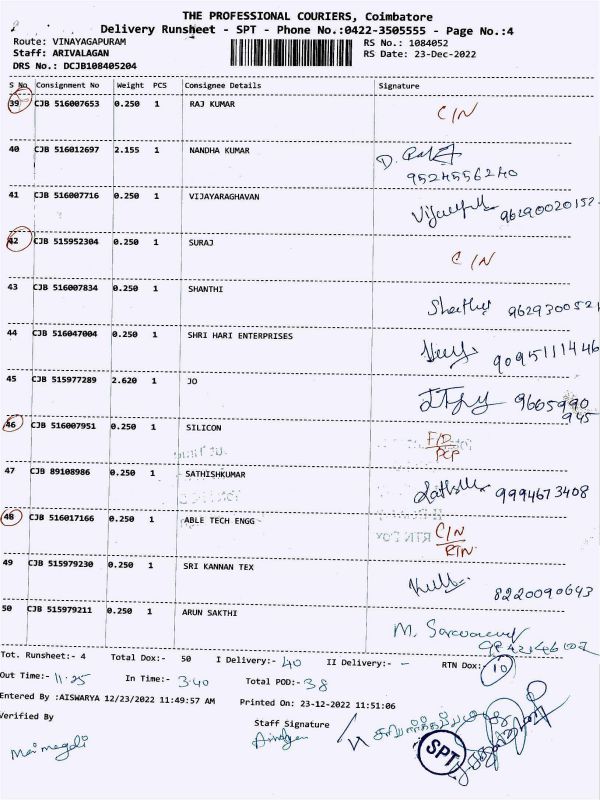 THE PROFESSIONAL COURIERS, Coimbatore
Delivery Runsheet - SPT - Phone No.:0422-3505555 - Page No.:4
Route: VINAYAGAPURAM RS No.: 1084052
Staff: ARIVALAGAN RS Date: 23-Dec-2022
DRS No.: DCJB108405204
S No Consignment No Weight PCS Consignee Details Signature
39 CJB 516007653 0.250 1 RAJ KUMAR C/N
40 CJB 516012697 2.155 1 NANDHA KUMAR D.
9524556240
41 CJB 516007716 0.250 1 VIJAYARAGHAVAN 96290020152
42 CJB 515952304 0.250 1 SURAJ C/N
43 CJB 516007834 0.250 1 SHANTHI 962930052
44 CJB 516047004 0.250 1 SHRI HARI ENTERPRISES 9095111446
45 CJB 515977289 2.620 1 JO 9665990
945
46 CJB 516007951 0.250 1 SILICON F/D
PCP
47 CJB 89108986 0.250 1 SATHISHKUMAR 9994673408
48 CJB 516017166 0.250 1 ABLE TECH ENGG C/N
RTN
49 CJB 515979230 0.250 1 SRI KANNAN TEX 8220090643
50 CJB 515979211 0.250 1 ARUN SAKTHI M.
Tot. Runsheet:- 4 Total Dox:- 50 I Delivery:- 40 II Delivery:- - RTN Dox:- 10
Out Time:- 11.25 In Time:- 3.40 Total POD:- 38
Entered By :AISWARYA 12/23/2022 11:49:57 AM Printed On: 23-12-2022 11:51:06
Verified By Staff Signature
SPT